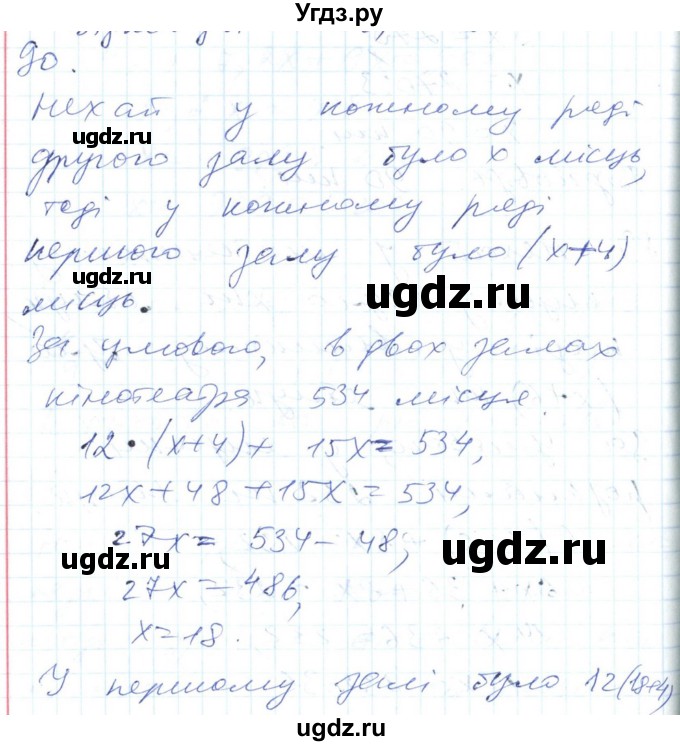 Угдз.ру
90.
Нехай у кожному ряді
другого залу було x місць,
тоді у кожному ряді
першого залу було (x+4)
місць.
За умовою, в двох залах
кінотеатра 534 місця.
12·(x+4)+ 15x=534,
12x+48+15x=534,
27x=534-48;
27x=486;
x=18.
У першому залі було 12(18+4)
ugdz.ru
ugdz.ru
ugdz.ru
ugdz.ru
ugdz.ru
ugdz.ru
ugdz.ru
ugdz.ru
ugdz.ru